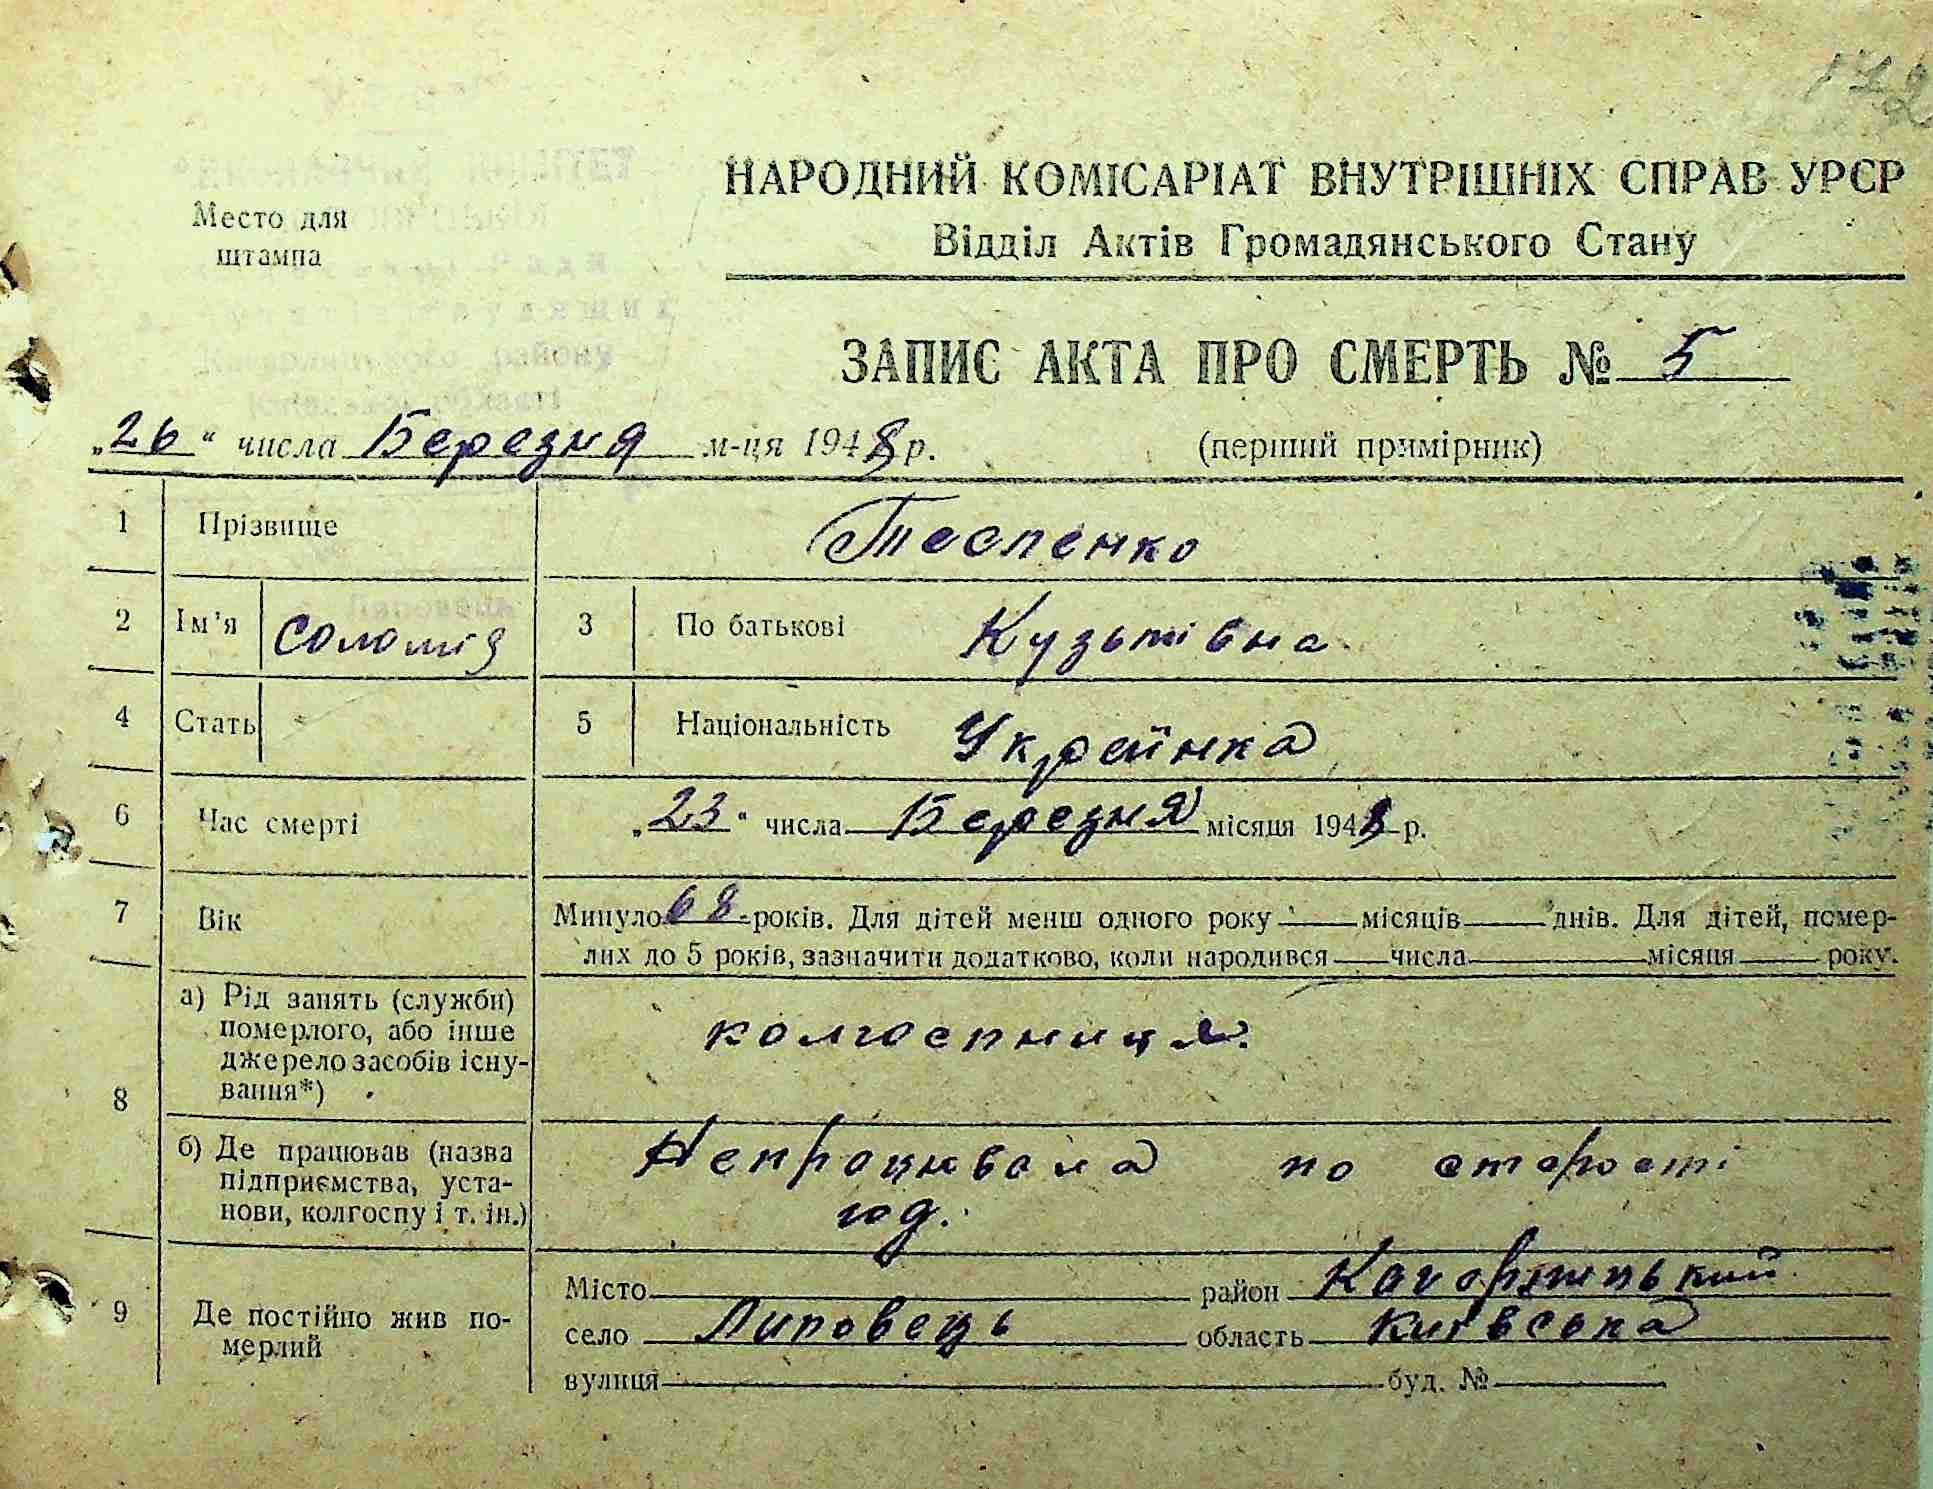 172
НАРОДНИЙ КОМІСАРІАТ ВНУТРІШНІХ СПРАВ УРСР
Відділ Актів Громадянського Стану
Место для
штампа
ЗАПИС АКТА ПРО СМЕРТЬ № 5
„26“ числа Березня м-ця 1948 р. (перший примірник)
1 Прізвище Тесленко
2 Ім'я Соломія 3 По батькові Кузьмівна
4 Стать 5 Національність Українка
6 Час смерті „23“ числа Березня місяця 1948 р.
7 Вік Минуло 68 років. Для дітей менш одного року місяців днів. Для дітей, помер-
лих до 5 років, зазначити додатково, коли народився числа місяця року.
8 а) Рід занять (служби)
померлого, або інше
джерело засобів існу-
вання*)
колгоспниця.
б) Де працював (назва
підприємства, уста-
нови, колгоспу і т. ін.)
Непрацювала по старості
год.
9 Де постійно жив по-
мерлий
Місто район
село Липовець область Київська
вулиця буд. №